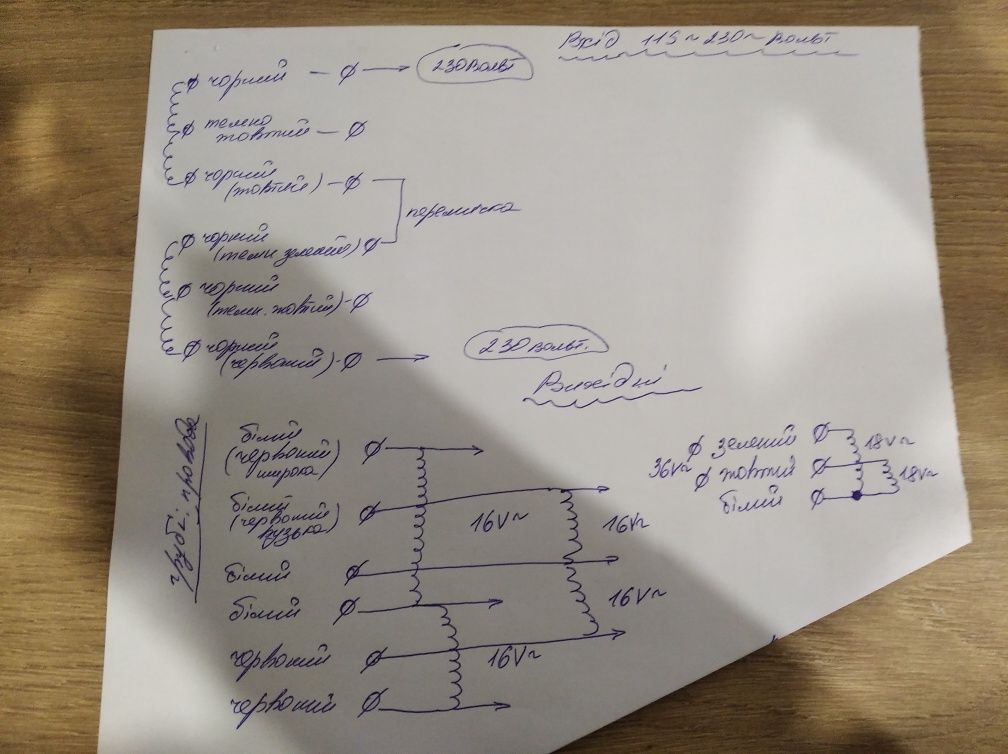 Вхід 115~230~ вольт
чорний
230 вольт
темно
жовтий
чорний
(жовтий)
перемичка
чорний
(темн зелений)
чорний
(темн. жовтий)
чорний
(червоний)
230 вольт.
Вихідні
грубі: провода
білий
(червоний
широка)
білий
(червоний
вузька)
16V~
16V~
білий
16V~
білий
червоний
16V~
червоний
зелений
18V~
36V~
жовтий
18V~
білий